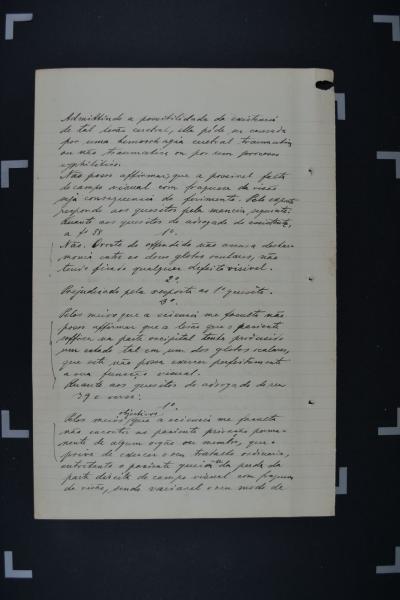 Admittindo a possibilidade da existencia
de tal lesão cerebral, ella póde ser causada
por uma hemorrhagia cerebral traumatica
ou não traumatica ou por um processo
syphilitico.
Não posso affirmar que a possivel falta
de campo visual com fraqueza da visão
seja consequencia do ferimento. Pelo exposto
respondo aos quesitos pela maneira seguinte:
Quanto aos quesitos do advogado do
a f 38
1º
Não. O rosto do offendido não accusa deshar
monia entre os dous globos oculares, não
tendo ficado qualquer defeito visivel.
2º
Prejudicado pela resposta ao 1º quesito.
3º
Pelos meios que a sciencia me faculta não
posso affirmar que a lesão que o paciente
soffreu na parte occipital tenha produzido
um estado tal em um dos globos oculares,
que este não possa exercer perfeitamente
a sua funcção visual.
Quanto aos quesitos do advogado do reu
39 e verso:
1º
Pelos meios objectivos que a sciencia me faculta
não encontro no paciente privação perma-
nente de algum orgão ou membro, que o
prive de exercer o seu trabalho ordinario,
entretanto o paciente queixa-se da perda da
parte direita do campo visual com fraqueza
de visão, sendo variavel o seu modo de